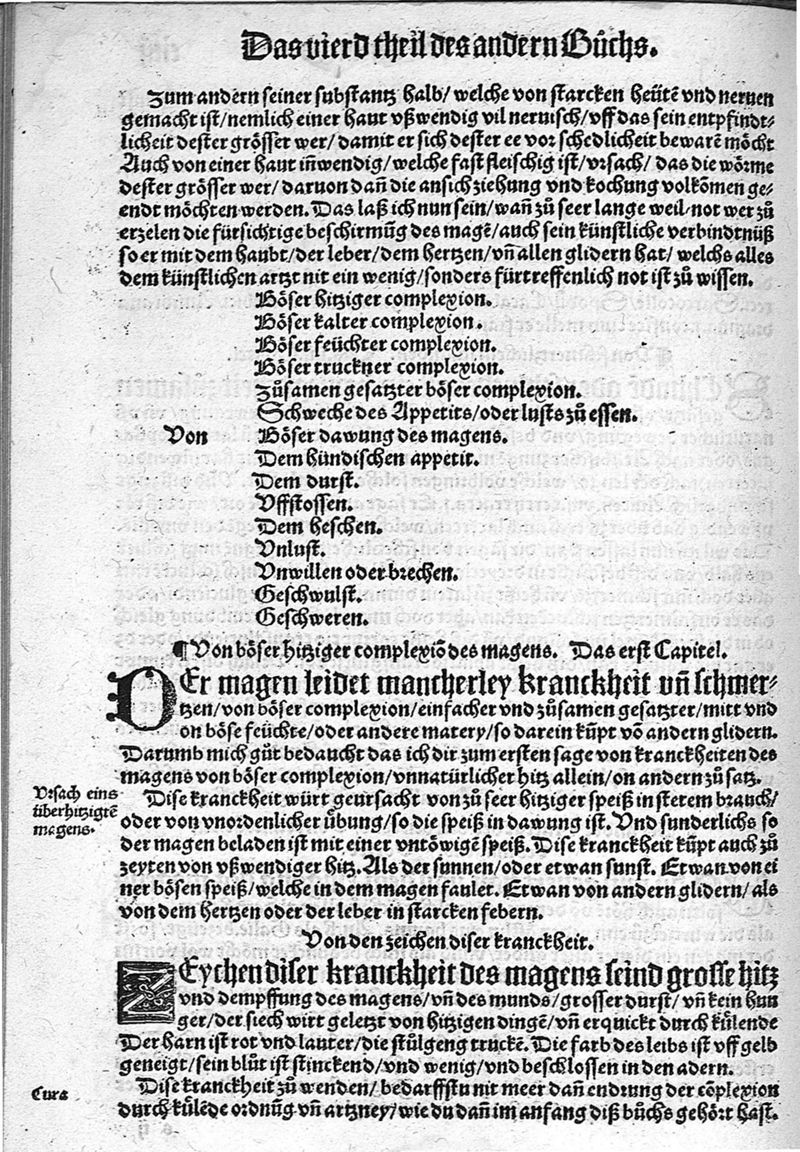 Das vierd theil des andern Bůchs.
Zum andern seiner substantz halb/ welche von starcken heütē vnd neruen
gemacht ist/ nemlich einer haut vßwendig vil neruisch/ vff das sein entpfindt⸗
licheit dester grösser wer/ damit er sich dester ee vor schedlicheit bewarē möcht
Auch von einer haut iñwendig/ welche fast fleischig ist/ vrsach/ das die wörme
dester grösser wer/ daruon dañ die ansich ziehung vnd kochung volkōmen ge⸗
endt möchten werden. Das laß ich nun sein/ wañ zů seer lange weil not wer zů
erzelen die fürsichtige beschirmūg des magē/ auch sein künstliche verbindtnüß
so er mit dem haubt/ der leber/ dem hertzen/ vñ allen glidern hat/ welchs alles
dem künstlichen artzt nit ein wenig/ sonders fürtreffenlich not ist zů wissen.
Böser hitziger complexion.
Böser kalter complexion.
Böser feüchter complexion.
Böser truckner complexion.
Zůsamen gesatzter böser complexion.
Schweche des Appetits/ oder lusts zů essen.
Von Böser dawung des magens.
Dem hündischen appetit.
Dem durst.
Vffstossen.
Dem heschen.
Vnlust.
Vnwillen oder brechen.
Geschwulst.
Geschweren.
¶ Von böser hitziger complexiō des magens. Das erst Capitel.
DEr magen leidet mancherley kranckheit vñ schmer⸗
tzen/ von böser complexion/ einfacher vnd zůsamen gesatzter/ mitt vnd
on böse feüchte/ oder andere matery/ so darein kūpt vō andern glidern.
Darumb mich gůt bedaucht das ich dir zum ersten sage von kranckheiten des
magens von böser complexion/ vnnatürlicher hitz allein/ on andern zů satz.
Vrsach eins
überhitzigtē
magens.
Dise kranckheit würt geursacht von zů seer hitziger speiß in sterem brauch/
oder von vnordenlicher übung/ so die speiß in dawung ist. Vnd sunderlichs so
der magen beladen ist mit einer vntöwigē speiß. Dise kranckheit kūpt auch zů
zeyten von vßwendiger hitz. Als der sunnen/ oder etwan sunst. Etwan von ei
ner bösen speiß/ welche in dem magen faulet. Etwan von andern glidern/ als
von dem hertzen oder der leber in starcken febern.
Von den zeichen diser kranckheit.
ZEychen diser kranckheit des magens seind grosse hitz
vnd dempffung des magens/ vñ des munds/ grosser durst/ vñ kein hun
ger/ der siech wirt geletzt von hitzigen dingē/ vñ erquickt durch kůlende
Der harn ist rot vnd lauter/ die stůlgeng truckē. Die farb des leibs ist vff gelb
geneigt/ sein blůt ist stinckend/ vnd wenig/ vnd beschlossen in den adern.
Cura
Dise kranckheit zů wenden/ bedarffstu nit meer dañ endrung der cōplexion
durch kůlēde ordnūg vñ artzney/ wie du dañ im anfang diß bůchs gehört hast.